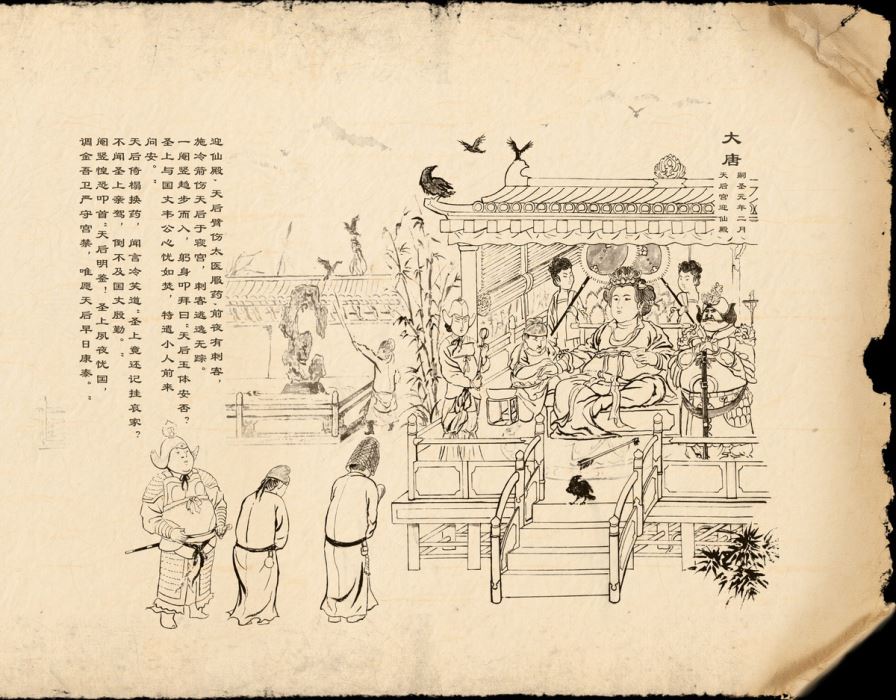 大唐
嗣圣元年二月
天后宫迎仙殿
迎仙殿，天后臂伤太医服药。前夜有刺客，
施冷箭伤天后于寝宫，刺客逃逸无踪。
一阉竖趋步而入，躬身叩拜曰："天后玉体安否？
圣上与国丈韦公心忧如焚，特遣小人前来
问安。"
天后倚榻换药，闻言冷笑道："圣上竟还记挂哀家？
不闻圣上亲驾，倒不及国丈殷勤。"
阉竖惶恐叩首："天后明鉴！圣上夙夜忧国，
调金吾卫严守宫禁，唯愿天后早日康泰。"